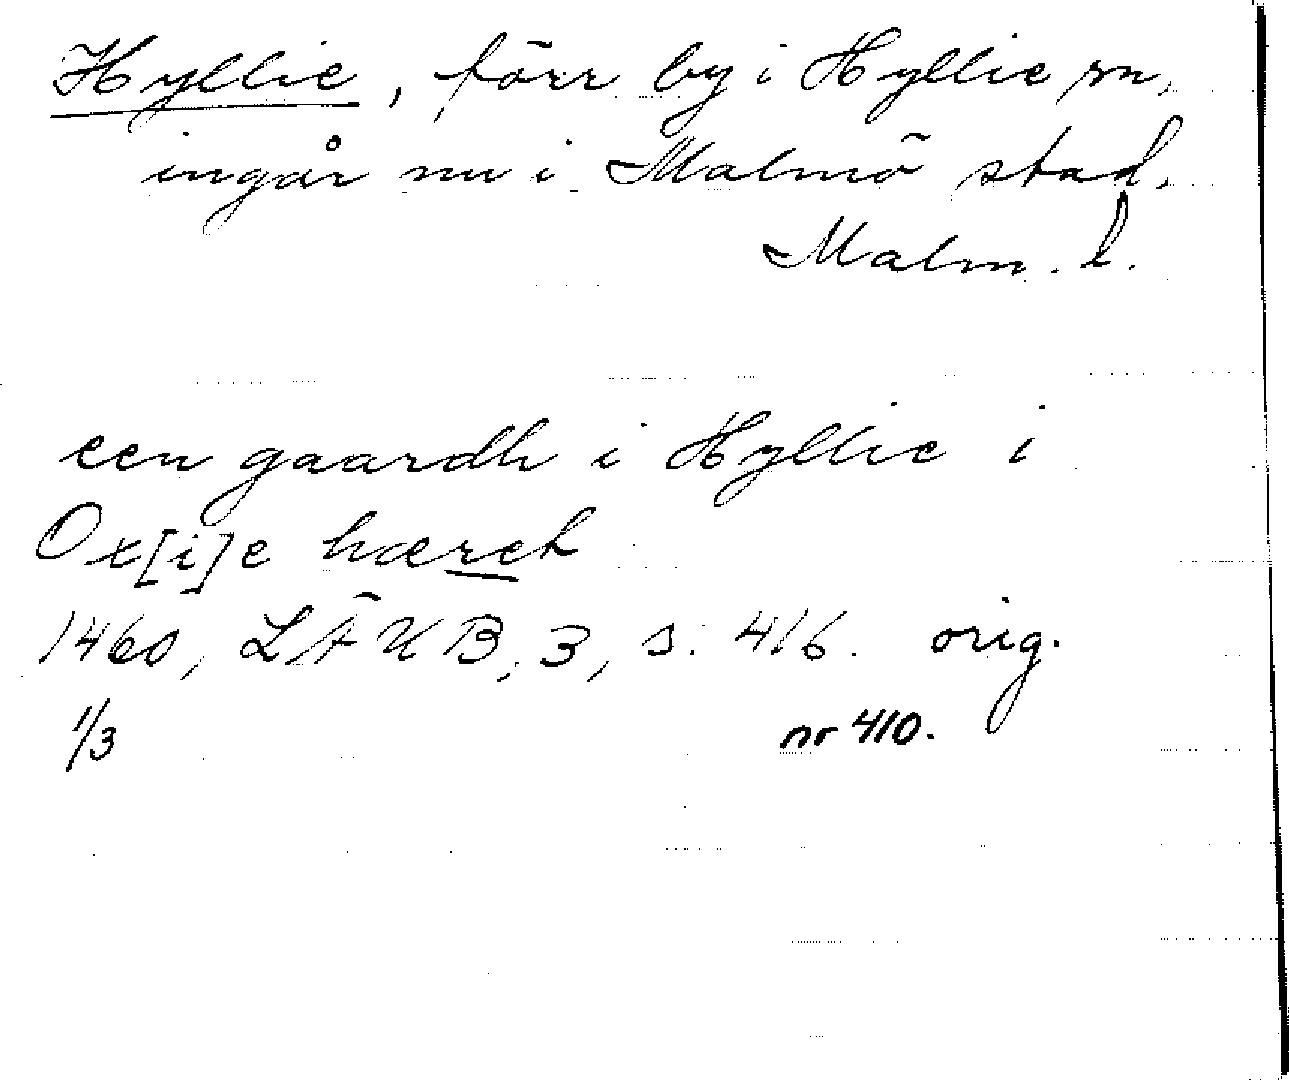 Hyllie, förr by i Hyllie sn,
ingår nu i Malmö stad.
Malm. l.
een gaardh i Hyllie i
Ox[i]e hæret
1460, LÄUB, 3, s. 416. orig.
1/3 nr 410.